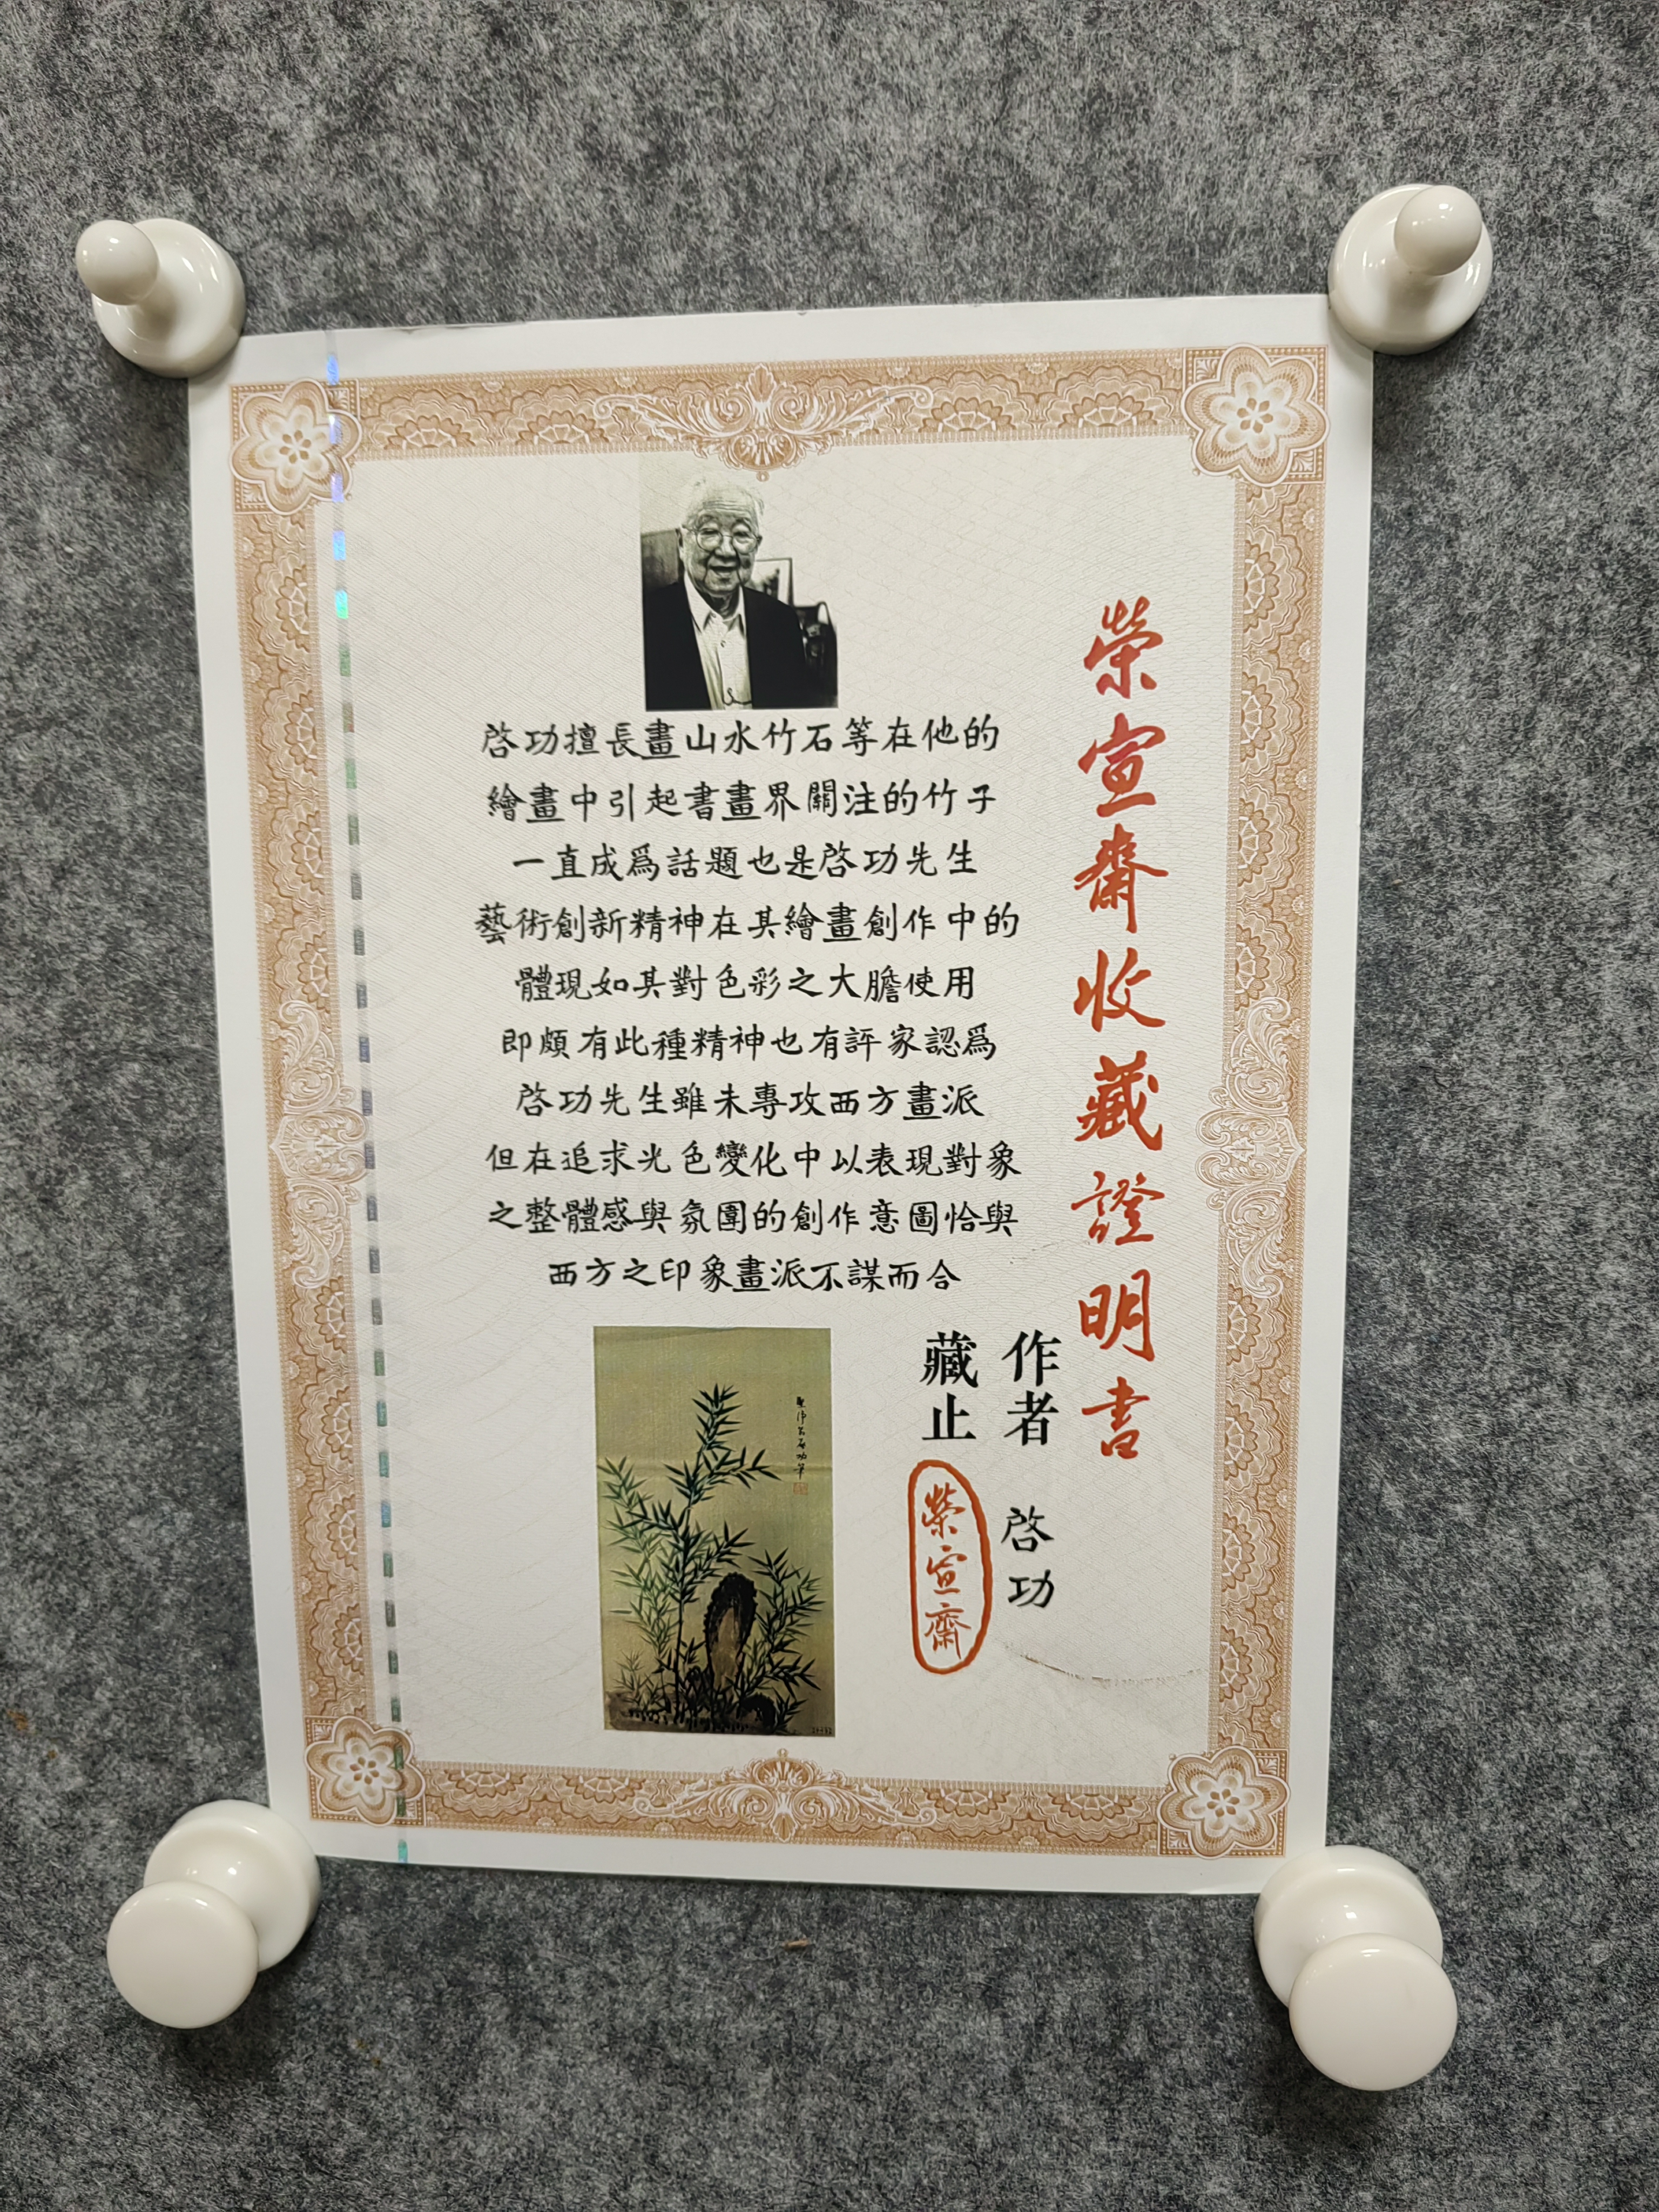 榮宣齋收藏證明書
啓功擅長畫山水竹石等在他的
繪畫中引起書畫界關注的竹子
一直成爲話題也是啓功先生
藝術創新精神在其繪畫創作中的
體現如其對色彩之大膽使用
即頗有此種精神也有評家認爲
啓功先生雖未專攻西方畫派
但在追求光色變化中以表現對象
之整體感與氛圍的創作意圖恰與
西方之印象畫派不謀而合
作者 啓功
藏止 榮宣齋